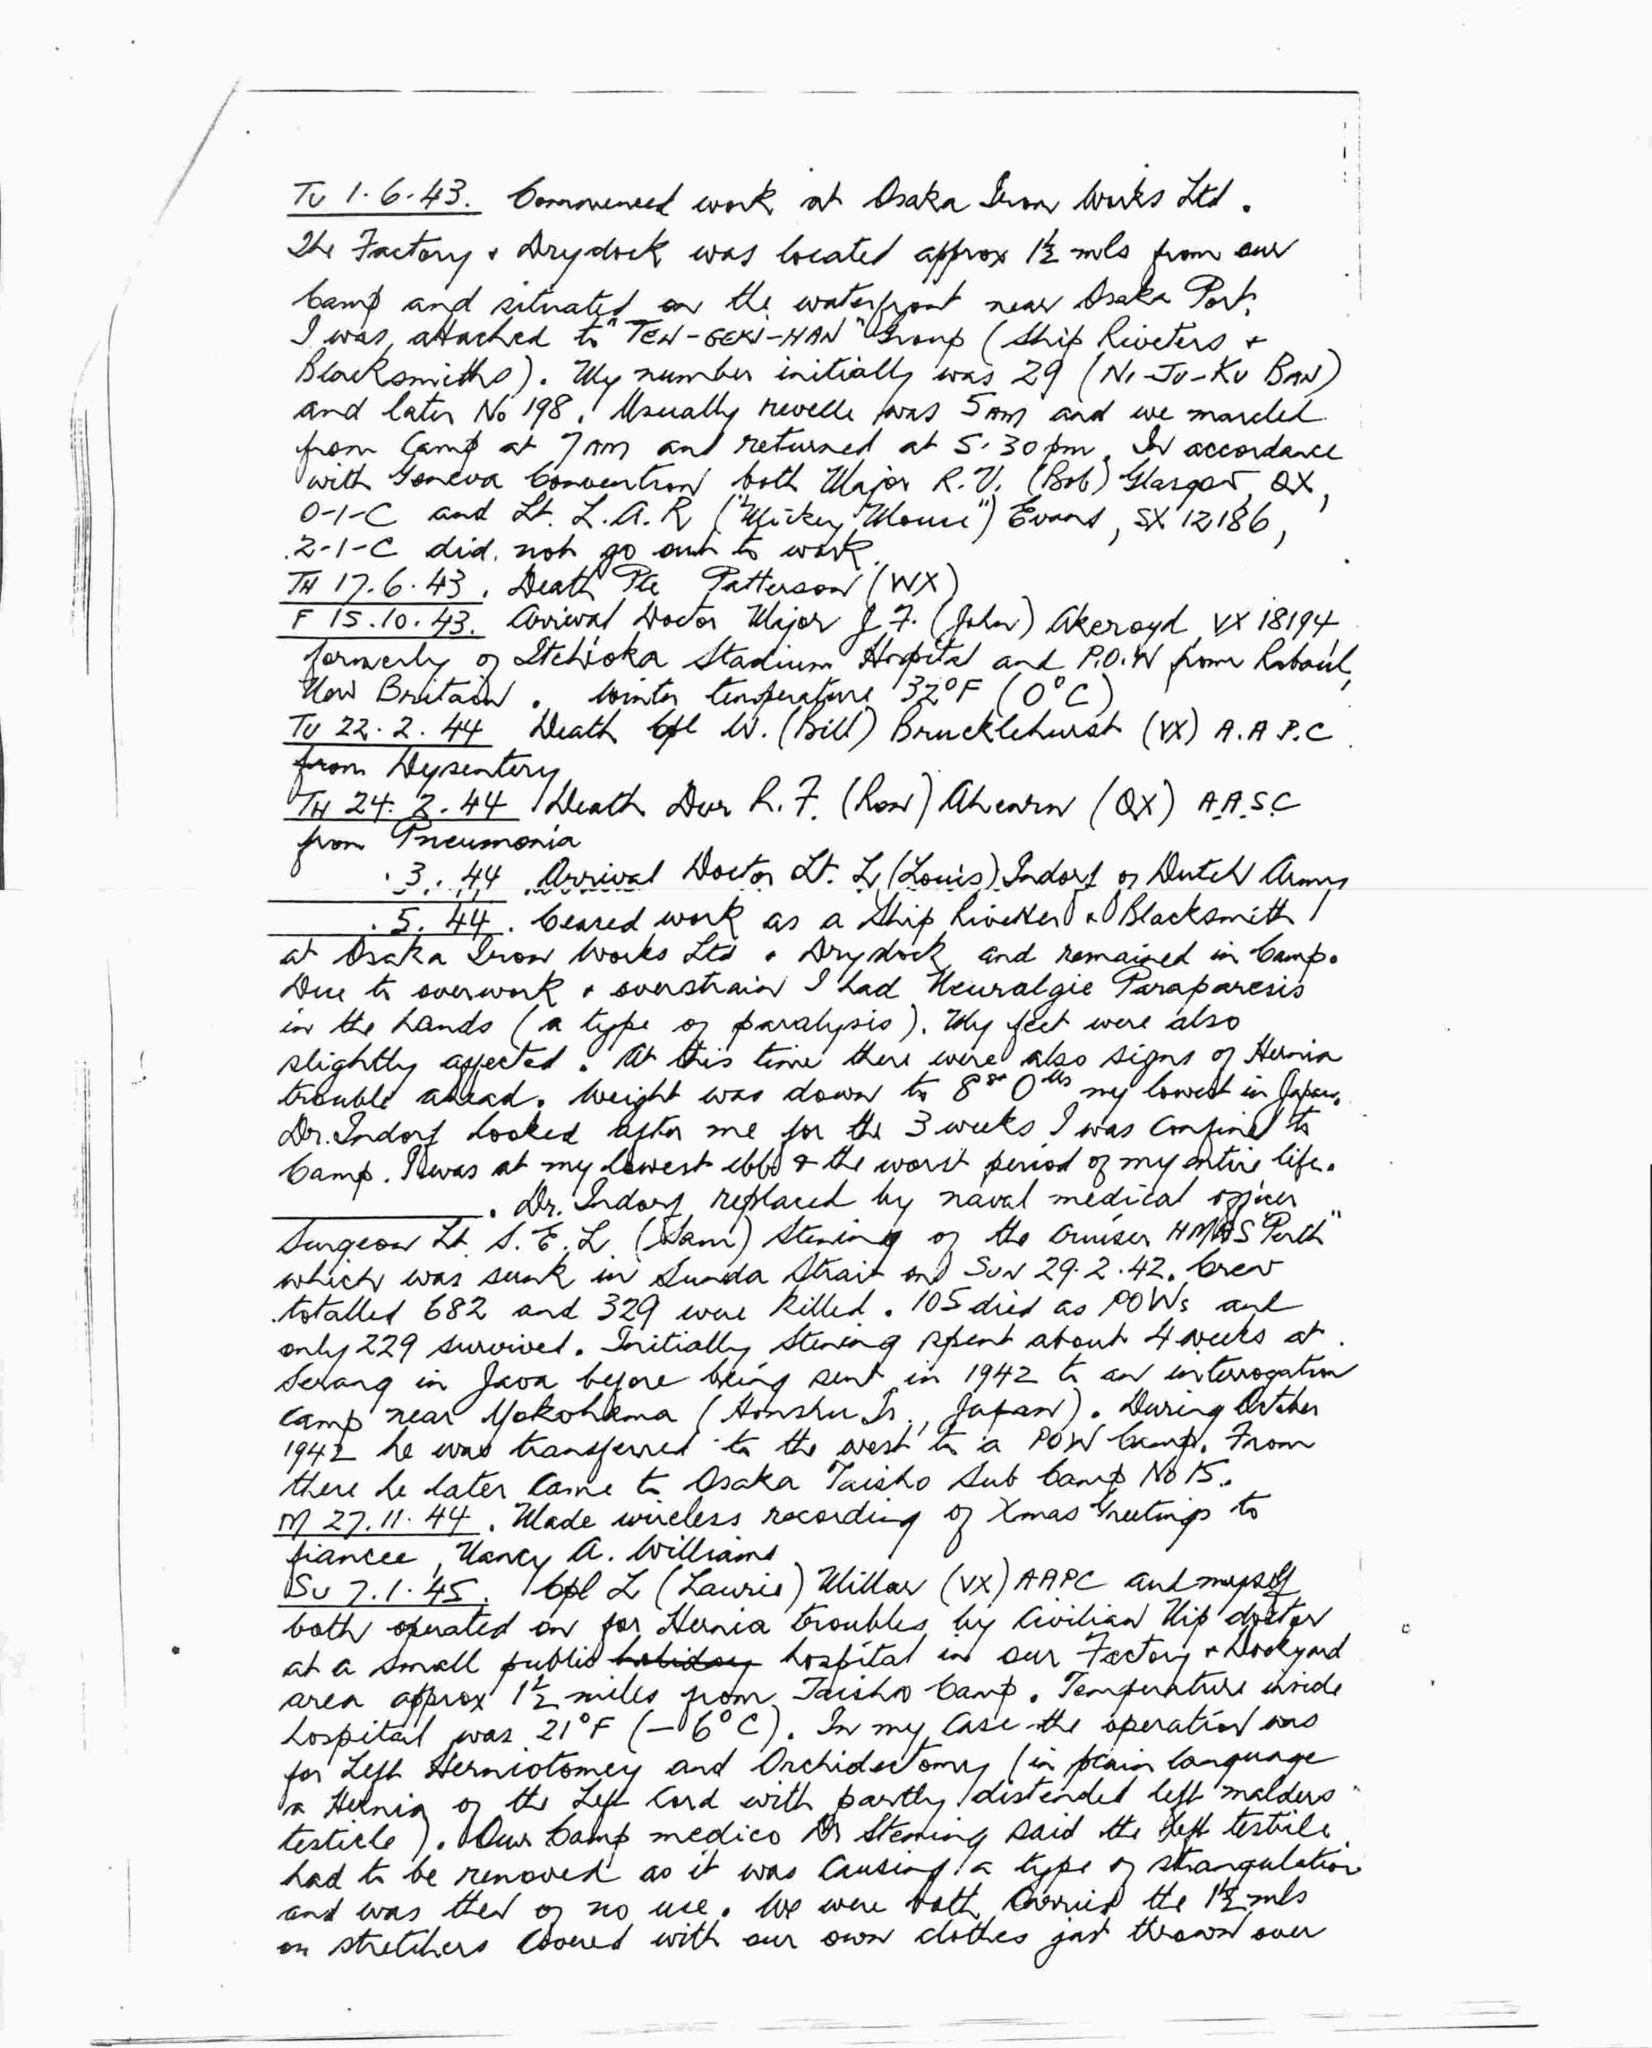 Tu 1.6.43. Commenced work at Osaka Iron Works Ltd.
The Factory & Drydock was located approx 1½ mls from our
Camp and situated on the waterfront near Osaka Port.
I was attached to "TEN-GEKI-HAN" Group (Ship Riveters &
Blacksmiths). My number initially was 29 (NI-JU-KU BAN)
and later No 198. Usually revelle was 5 AM and we marched
from Camp at 7 AM and returned at 5.30 pm. In accordance
with Geneva Convention both Major R.V. (Bob) Glasgow, QX,
O-I-C and Lt. L.A.R ("Mickey Mouse") Evans, SX 12186,
2-I-C did not go out to work.
TH 17.6.43. Death Pte Patterson (WX)
F 15.10.43. Arrival Doctor Major J F. (John) Akeroyd, VX 18194
formerly of Itchioka Stadium Hospital and P.O.W from Rabaul,
New Britain. Winter temperature 32°F (0°C)
Tu 22.2.44 Death Cpl W. (Bill) Brucklehurst (VX) A.A.P.C
from Dysentery
TH 24.2.44 Death Dvr R.F. (Ron) Ahearn (QX) A.A.S.C
from Pneumonia
.3.44 Arrival Doctor Lt. L (Louis) Indorf of Dutch Army
.5.44. Ceased work as a Ship Rivetter & Blacksmith
at Osaka Iron Works Ltd & Drydock and remained in Camp.
Due to overwork & overstrain I had Neuralgie Paraparesis
in the hands (a type of paralysis). My feet were also
slightly affected. At this time there were also signs of Hernia
trouble ahead. Weight was down to 8st 0lbs my lowest in Japan.
Dr. Indorf looked after me for the 3 weeks I was confined to
Camp. I was at my lowest ebb & the worst period of my entire life.
. Dr. Indorf replaced by naval medical officer
Surgeon Lt. S.E.L. (Sam) Stening of the cruiser HMAS "Perth"
which was sunk in Sunda Strait on Sun 29.2.42. Crew
totalled 682 and 329 were killed. 105 died as POWs and
only 229 survived. Initially Stening spent about 4 weeks at
Serang in Java before being sent in 1942 to an interrogation
Camp near Yokohama (Honshu Is., Japan). During October
1942 he was transferred to the west to a POW Camp. From
there he later came to Osaka Taisho Sub Camp No 15.
M 27.11.44. Made wireless recording of Xmas Greetings to
fiancee, Nancy A. Williams
Su 7.1.45. Cpl L (Laurie) Millar (VX) AAPC and myself
both operated on for Hernia troubles by Civilian Nip doctor
at a small public holiday hospital in our Factory & Dockyard
area approx 1½ miles from Taisho Camp. Temperature inside
hospital was 21°F (-6°C). In my case the operation was
for Left Herniotomey and Orchidectomy (in plain language
a Hernia of the Left Cord with partly distended left
testicle). Our Camp medico Dr Stening said the left testicle
had to be removed as it was causing a type of strangulation
and was then of no use. We were both carried the 1½ mls
on stretchers covered with our own clothes just thrown over